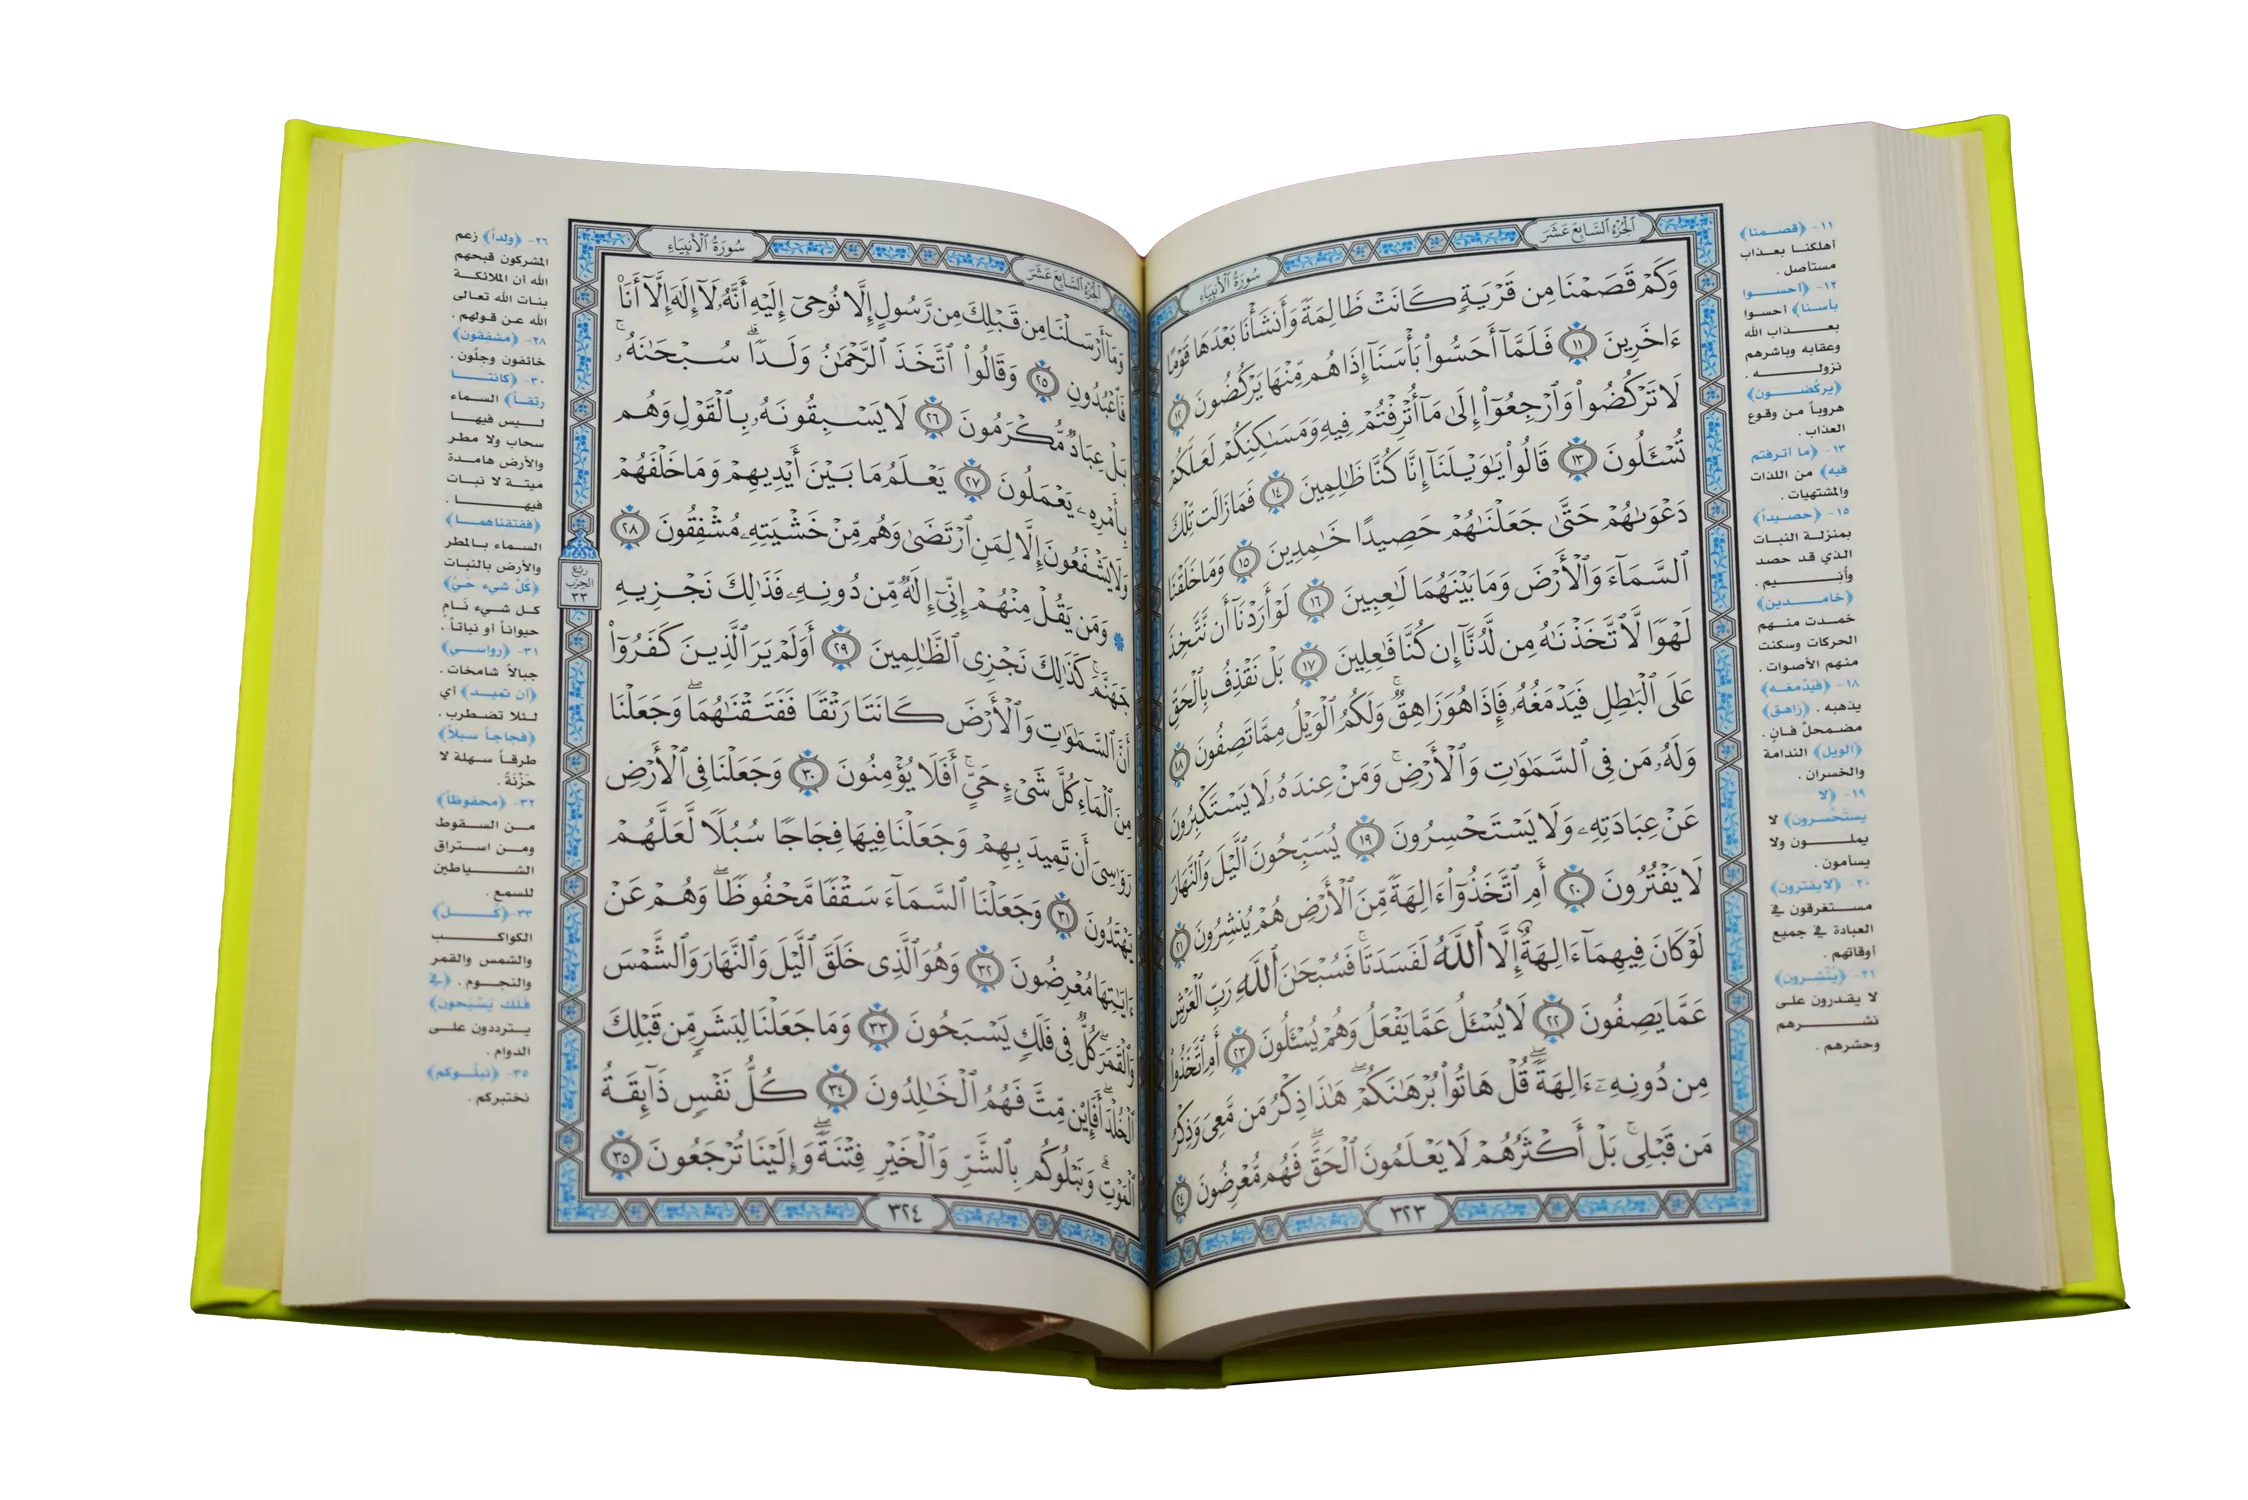 سُورَةُ الْأَنْبِيَاءِ
الْجُزْءُ السَّابِعَ عَشَرَ
وَكَمْ قَصَمْنَا مِن قَرْيَةٍ كَانَتْ ظَالِمَةً وَأَنشَأْنَا بَعْدَهَا قَوْمًا
ءَاخَرِينَ ١١ فَلَمَّآ أَحَسُّوا۟ بَأْسَنَآ إِذَا هُم مِّنْهَا يَرْكُضُونَ ١٢
لَا تَرْكُضُوا۟ وَٱرْجِعُوٓا۟ إِلَىٰ مَآ أُتْرِفْتُمْ فِيهِ وَمَسَـٰكِنِكُمْ لَعَلَّكُمْ
تُسْـَٔلُونَ ١٣ قَالُوا۟ يَـٰوَيْلَنَآ إِنَّا كُنَّا ظَـٰلِمِينَ ١٤ فَمَا زَالَت تِّلْكَ
دَعْوَىٰهُمْ حَتَّىٰ جَعَلْنَـٰهُمْ حَصِيدًا خَـٰمِدِينَ ١٥ وَمَا خَلَقْنَا
ٱلسَّمَآءَ وَٱلْأَرْضَ وَمَا بَيْنَهُمَا لَـٰعِبِينَ ١٦ لَوْ أَرَدْنَآ أَن نَّتَّخِذَ
لَهْوًا لَّٱتَّخَذْنَـٰهُ مِن لَّدُنَّآ إِن كُنَّا فَـٰعِلِينَ ١٧ بَلْ نَقْذِفُ بِٱلْحَقِّ
عَلَى ٱلْبَـٰطِلِ فَيَدْمَغُهُۥ فَإِذَا هُوَ زَاهِقٌ ۚ وَلَكُمُ ٱلْوَيْلُ مِمَّا تَصِفُونَ ١٨
وَلَهُۥ مَن فِى ٱلسَّمَـٰوَٰتِ وَٱلْأَرْضِ ۚ وَمَنْ عِندَهُۥ لَا يَسْتَكْبِرُونَ
عَنْ عِبَادَتِهِۦ وَلَا يَسْتَحْسِرُونَ ١٩ يُسَبِّحُونَ ٱلَّيْلَ وَٱلنَّهَارَ
لَا يَفْتُرُونَ ٢٠ أَمِ ٱتَّخَذُوٓا۟ ءَالِهَةً مِّنَ ٱلْأَرْضِ هُمْ يُنشِرُونَ ٢١
لَوْ كَانَ فِيهِمَآ ءَالِهَةٌ إِلَّا ٱللَّهُ لَفَسَدَتَا ۚ فَسُبْحَـٰنَ ٱللَّهِ رَبِّ ٱلْعَرْشِ
عَمَّا يَصِفُونَ ٢٢ لَا يُسْـَٔلُ عَمَّا يَفْعَلُ وَهُمْ يُسْـَٔلُونَ ٢٣ أَمِ ٱتَّخَذُوا۟
مِن دُونِهِۦٓ ءَالِهَةً ۖ قُلْ هَاتُوا۟ بُرْهَـٰنَكُمْ ۖ هَـٰذَا ذِكْرُ مَن مَّعِىَ وَذِكْرُ
مَن قَبْلِى ۚ بَلْ أَكْثَرُهُمْ لَا يَعْلَمُونَ ٱلْحَقَّ ۖ فَهُم مُّعْرِضُونَ ٢٤
٣٢٣
١١- ﴿قصمنا﴾
أهلكنا بعذاب
مستأصل .
١٢- ﴿أحسوا
بأسنا﴾ أحسوا
بعذاب الله
وعقابه وباشرهم
نزوله .
﴿يركضون﴾
هروباً من وقوع
العذاب .
١٣- ﴿ما أترفتم
فيه﴾ من اللذات
والمشتهيات .
١٥- ﴿حصيداً﴾
بمنزلة النبات
الذي قد حصد
وأنيم .
﴿خامدين﴾
خمدت منهم
الحركات وسكنت
منهم الأصوات .
١٨- ﴿فيدمغه﴾
يذهبه . ﴿زاهق﴾
مضمحلّ فانٍ .
﴿الويل﴾ الندامة
والخسران .
١٩- ﴿لا
يستحسرون﴾ لا
يملون ولا
يسأمون .
٢٠- ﴿لا يفترون﴾
مستغرقون في
العبادة في جميع
أوقاتهم .
٢١- ﴿يُنْشرون﴾
لا يقدرون على
نشرهم
وحشرهم .
الْجُزْءُ السَّابِعَ عَشَرَ
سُورَةُ الْأَنْبِيَاءِ
وَمَآ أَرْسَلْنَا مِن قَبْلِكَ مِن رَّسُولٍ إِلَّا نُوحِىٓ إِلَيْهِ أَنَّهُۥ لَآ إِلَـٰهَ إِلَّآ أَنَا۠
فَٱعْبُدُونِ ٢٥ وَقَالُوا۟ ٱتَّخَذَ ٱلرَّحْمَـٰنُ وَلَدًا ۗ سُبْحَـٰنَهُۥ ۚ
بَلْ عِبَادٌ مُّكْرَمُونَ ٢٦ لَا يَسْبِقُونَهُۥ بِٱلْقَوْلِ وَهُم
بِأَمْرِهِۦ يَعْمَلُونَ ٢٧ يَعْلَمُ مَا بَيْنَ أَيْدِيهِمْ وَمَا خَلْفَهُمْ
وَلَا يَشْفَعُونَ إِلَّا لِمَنِ ٱرْتَضَىٰ وَهُم مِّنْ خَشْيَتِهِۦ مُشْفِقُونَ ٢٨
۞ وَمَن يَقُلْ مِنْهُمْ إِنِّىٓ إِلَـٰهٌ مِّن دُونِهِۦ فَذَٰلِكَ نَجْزِيهِ
جَهَنَّمَ ۚ كَذَٰلِكَ نَجْزِى ٱلظَّـٰلِمِينَ ٢٩ أَوَلَمْ يَرَ ٱلَّذِينَ كَفَرُوٓا۟
أَنَّ ٱلسَّمَـٰوَٰتِ وَٱلْأَرْضَ كَانَتَا رَتْقًا فَفَتَقْنَـٰهُمَا ۖ وَجَعَلْنَا
مِنَ ٱلْمَآءِ كُلَّ شَىْءٍ حَىٍّ ۖ أَفَلَا يُؤْمِنُونَ ٣٠ وَجَعَلْنَا فِى ٱلْأَرْضِ
رَوَٰسِىَ أَن تَمِيدَ بِهِمْ وَجَعَلْنَا فِيهَا فِجَاجًا سُبُلًا لَّعَلَّهُمْ
يَهْتَدُونَ ٣١ وَجَعَلْنَا ٱلسَّمَآءَ سَقْفًا مَّحْفُوظًا ۖ وَهُمْ عَنْ
ءَايَـٰتِهَا مُعْرِضُونَ ٣٢ وَهُوَ ٱلَّذِى خَلَقَ ٱلَّيْلَ وَٱلنَّهَارَ وَٱلشَّمْسَ
وَٱلْقَمَرَ ۖ كُلٌّ فِى فَلَكٍ يَسْبَحُونَ ٣٣ وَمَا جَعَلْنَا لِبَشَرٍ مِّن قَبْلِكَ
ٱلْخُلْدَ ۖ أَفَإِي۟ن مِّتَّ فَهُمُ ٱلْخَـٰلِدُونَ ٣٤ كُلُّ نَفْسٍ ذَآئِقَةُ
ٱلْمَوْتِ ۗ وَنَبْلُوكُم بِٱلشَّرِّ وَٱلْخَيْرِ فِتْنَةً ۖ وَإِلَيْنَا تُرْجَعُونَ ٣٥
٣٢٤
ربع
الحزب
٣٣
٢٦- ﴿ولداً﴾ زعم
المشركون قبحهم
الله أن الملائكة
بنات الله تعالى
الله عن قولهم .
٢٨- ﴿مشفقون﴾
خائفون وجلون .
٣٠- ﴿كانتا
رتقاً﴾ السماء
ليس فيها
سحاب ولا مطر
والأرض هامدة
ميتة لا نبات
فيها .
﴿ففتقناهما﴾
السماء بالمطر
والأرض بالنبات
﴿كُلّ شيء حَيّ﴾
كل شيء نَامٍ
حيواناً أو نباتاً .
٣١- ﴿رواسي﴾
جبالاً شامخات .
﴿أن تميد﴾ أي
لئلا تضطرب .
﴿فجاجاً سبلاً﴾
طرقاً سهلة لا
حَزْنَةً .
٣٢- ﴿محفوظاً﴾
من السقوط
ومن استراق
الشياطين
للسمع .
٣٣- ﴿كل﴾
الكواكب
والشمس والقمر
والنجوم . ﴿في
فلك يَسْبحون﴾
يترددون على
الدوام .
٣٥- ﴿نبلُوكم﴾
نختبركم .